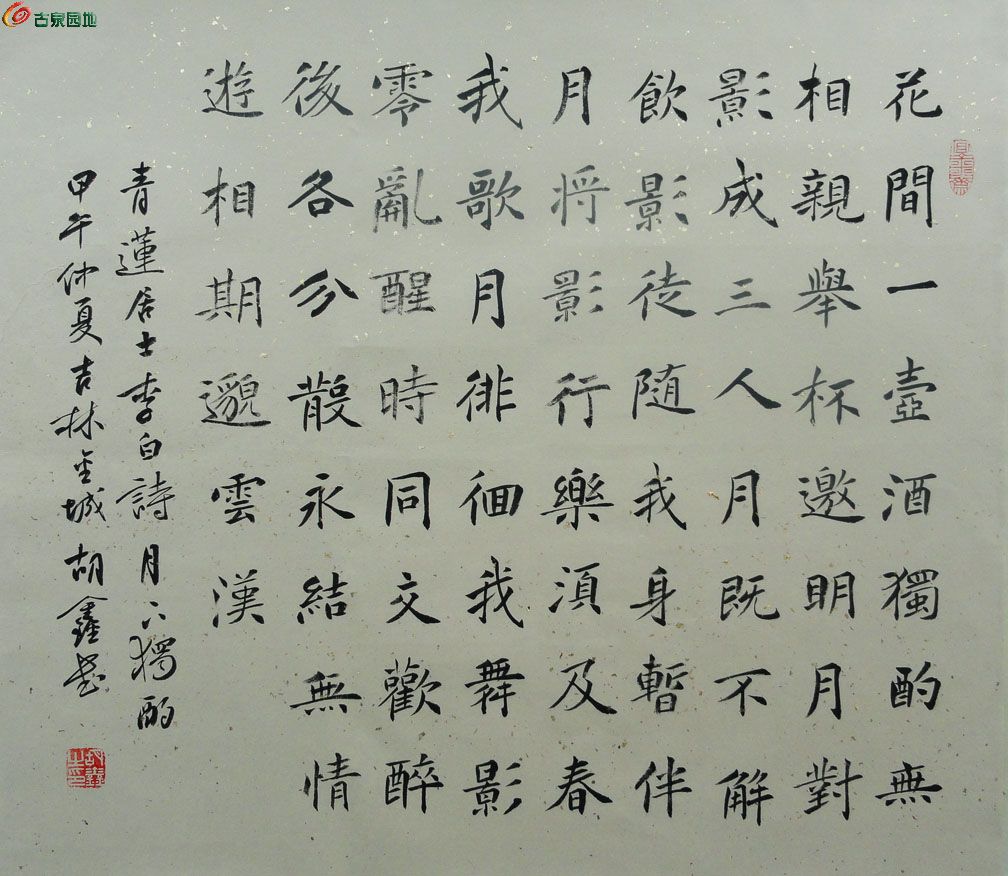 古泉园地
花間一壺酒獨酌無
相親舉杯邀明月對
影成三人月既不解
飲影徒随我身暫伴
月将影行樂須及春
我歌月徘徊我舞影
零亂醒時同交歡醉
後各分散永結無情
遊相期邈雲漢
青蓮居士李白詩月下獨酌
甲午仲夏吉林金城胡鑫书